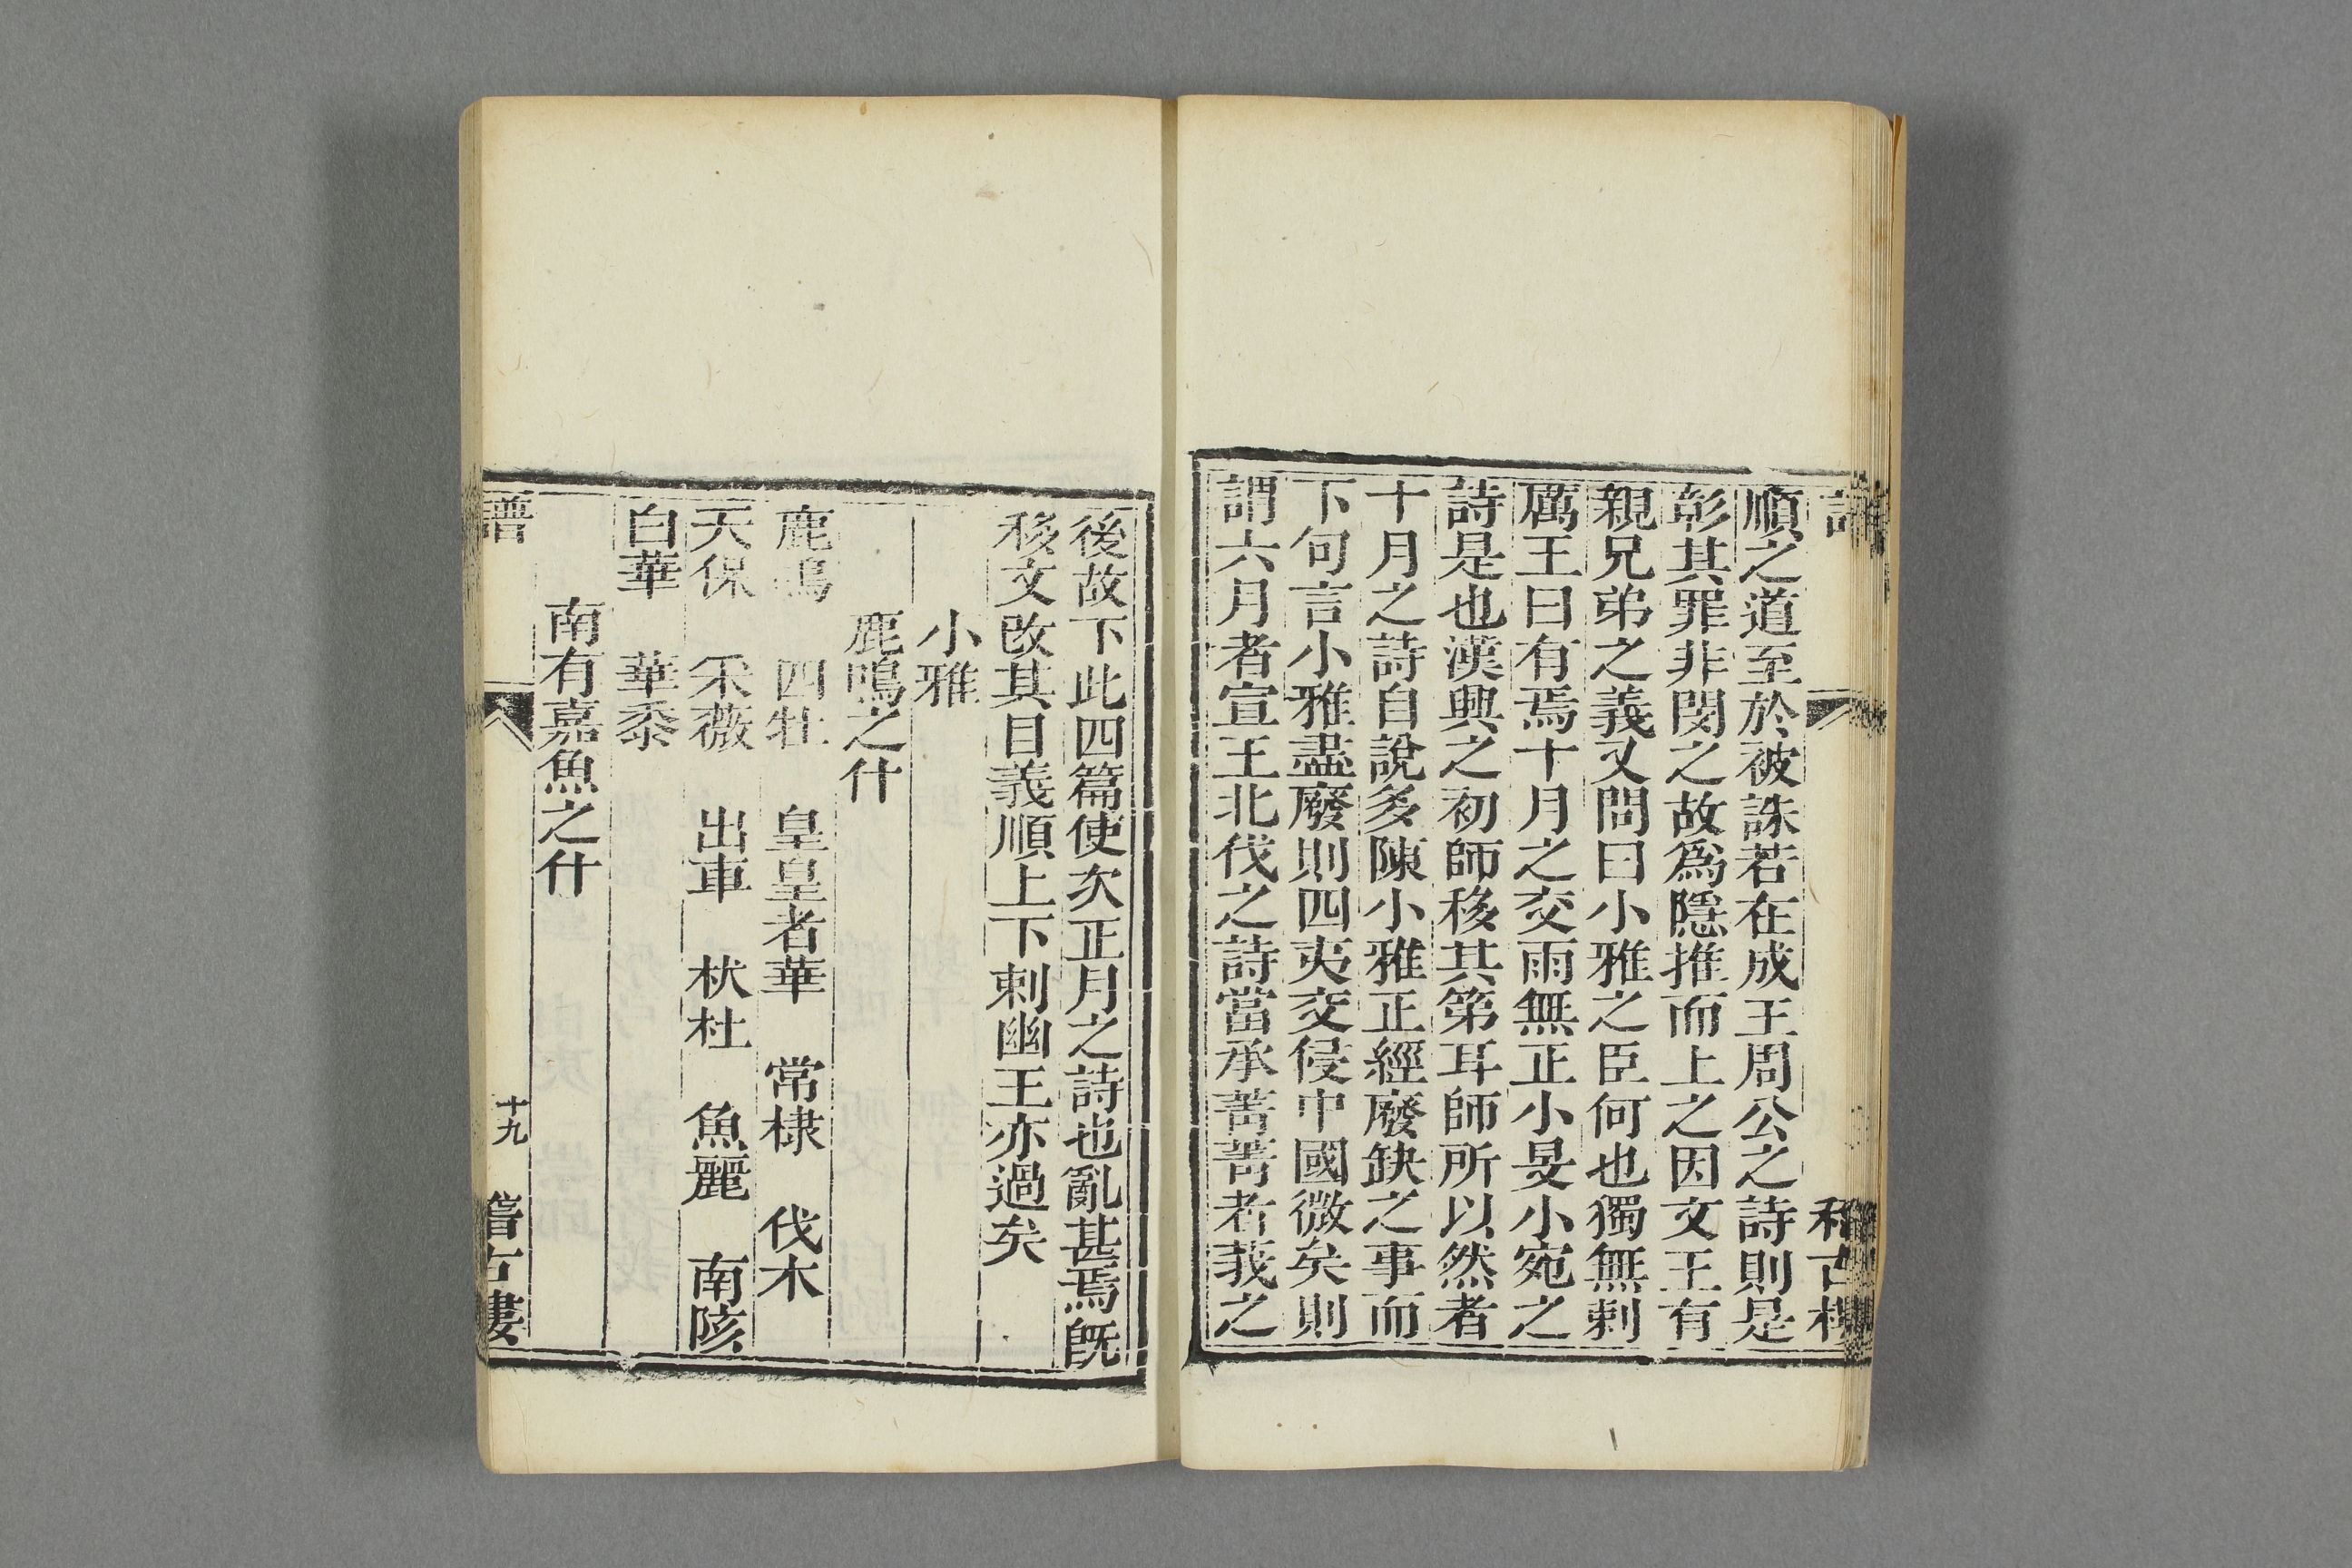 順之道至於被誅若在成王周公之詩則是
彰其罪非閔之故爲隱推而上之因文王有
親兄弟之義又問曰小雅之臣何也獨無刺
厲王曰有焉十月之交雨無正小旻小宛之
詩是也漢興之初師移其第耳師所以然者
十月之詩自說多陳小雅正經廢缺之事而
下句言小雅盡廢則四夷交侵中國微矣則
謂六月者宣王北伐之詩當承菁菁者莪之
後故下此四篇使次正月之詩也亂甚焉旣
移文改其目義順上下刺幽王亦過矣
小雅
鹿鳴之什
鹿鳴 四牡 皇皇者華 常棣 伐木
天保 采薇 出車 杕杜 魚麗 南陔
白華 華黍
南有嘉魚之什
譜 十九 稽古樓